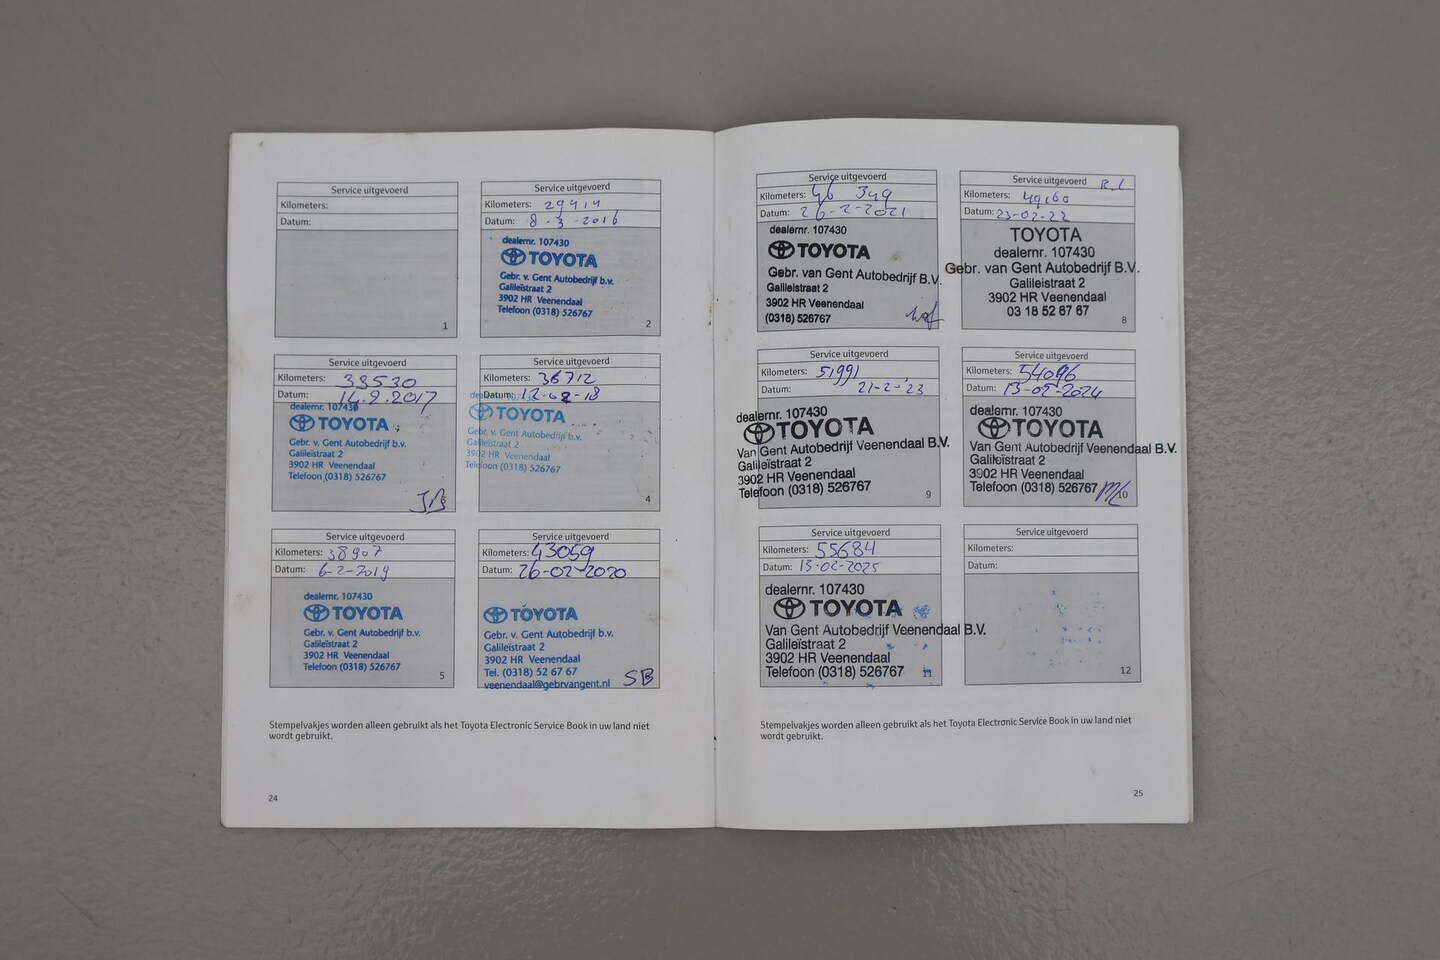 Service uitgevoerd
Kilometers:
Datum:
1
Service uitgevoerd
Kilometers: 29414
Datum: 8-3-2016
dealernr. 107430
TOYOTA
Gebr. v. Gent Autobedrijf b.v.
Galileïstraat 2
3902 HR Veenendaal
Telefoon (0318) 526767
2
Service uitgevoerd
Kilometers: 33530
Datum: 14.9.2017
dealernr. 107430
TOYOTA
Gebr. v. Gent Autobedrijf b.v.
Galileïstraat 2
3902 HR Veenendaal
Telefoon (0318) 526767
JB
Service uitgevoerd
Kilometers: 36712
Datum: 12-02-18
TOYOTA
Gebr. v. Gent Autobedrijf b.v.
Galileïstraat 2
3902 HR Veenendaal
Telefoon (0318) 526767
4
Service uitgevoerd
Kilometers: 38907
Datum: 6-2-2019
dealernr. 107430
TOYOTA
Gebr. v. Gent Autobedrijf b.v.
Galileïstraat 2
3902 HR Veenendaal
Telefoon (0318) 526767
5
Service uitgevoerd
Kilometers: 43059
Datum: 26-02-2020
TOYOTA
Gebr. v. Gent Autobedrijf b.v.
Galileïstraat 2
3902 HR Veenendaal
Tel. (0318) 52 67 67
veenendaal@gebrvangent.nl SB
Stempelvakjes worden alleen gebruikt als het Toyota Electronic Service Book in uw land niet
wordt gebruikt.
24
Service uitgevoerd
Kilometers: 46 349
Datum: 26-2-2021
dealernr. 107430
TOYOTA
Gebr. van Gent Autobedrijf B.V.
Galileistraat 2
3902 HR Veenendaal
(0318) 526767
Service uitgevoerd R.L
Kilometers: 49160
Datum: 23-02-22
TOYOTA
dealernr. 107430
Gebr. van Gent Autobedrijf B.V.
Galileistraat 2
3902 HR Veenendaal
03 18 52 67 67
8
Service uitgevoerd
Kilometers: 51991
Datum: 21-2-'23
dealernr. 107430
TOYOTA
Van Gent Autobedrijf Veenendaal B.V.
Galileïstraat 2
3902 HR Veenendaal
Telefoon (0318) 526767
9
Service uitgevoerd
Kilometers: 54096
Datum: 13-02-2024
dealernr. 107430
TOYOTA
Van Gent Autobedrijf Veenendaal B.V.
Galileïstraat 2
3902 HR Veenendaal
Telefoon (0318) 526767
10
Service uitgevoerd
Kilometers: 55684
Datum: 13-02-2025
dealernr. 107430
TOYOTA
Van Gent Autobedrijf Veenendaal B.V.
Galileïstraat 2
3902 HR Veenendaal
Telefoon (0318) 526767
Service uitgevoerd
Kilometers:
Datum:
12
Stempelvakjes worden alleen gebruikt als het Toyota Electronic Service Book in uw land niet
wordt gebruikt.
25